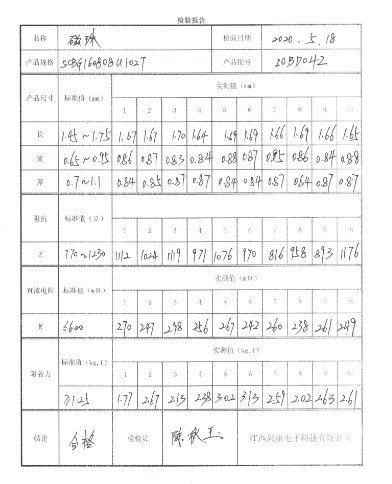 检验报告
名称 磁珠 检验日期 2020.5.18
产品规格 SCBG160808U102T 产品批号 20BD042
产品尺寸 标准值(mm) 实测值(mm)
1 2 3 4 5 6 7 8 9 10
长 1.45~1.75 1.67 1.67 1.70 1.64 1.69 1.69 1.66 1.69 1.66 1.65
宽 0.65~0.95 0.86 0.87 0.83 0.84 0.88 0.87 0.85 0.86 0.84 0.88
厚 0.7~1.1 0.84 0.85 0.87 0.87 0.84 0.84 0.87 0.84 0.87 0.87
阻抗 标准值(Ω)
1 2 3 4 5 6 7 8 9 10
Z 770~1230 1112 1024 1119 971 1076 970 816 958 893 1176
直流电阻 标准值(mΩ) 实测值(mΩ)
1 2 3 4 5 6 7 8 9 10
R ≤600 270 247 248 256 267 242 260 238 261 249
附着力 标准值(kg.f) 实测值(kg.f)
1 2 3 4 5 6 7 8 9 10
≥1.25 1.77 2.67 2.13 2.38 3.02 3.13 2.59 2.02 2.63 2.61
结论 合格 检验员 陈秋玉 江西兴康电子科技有限公司